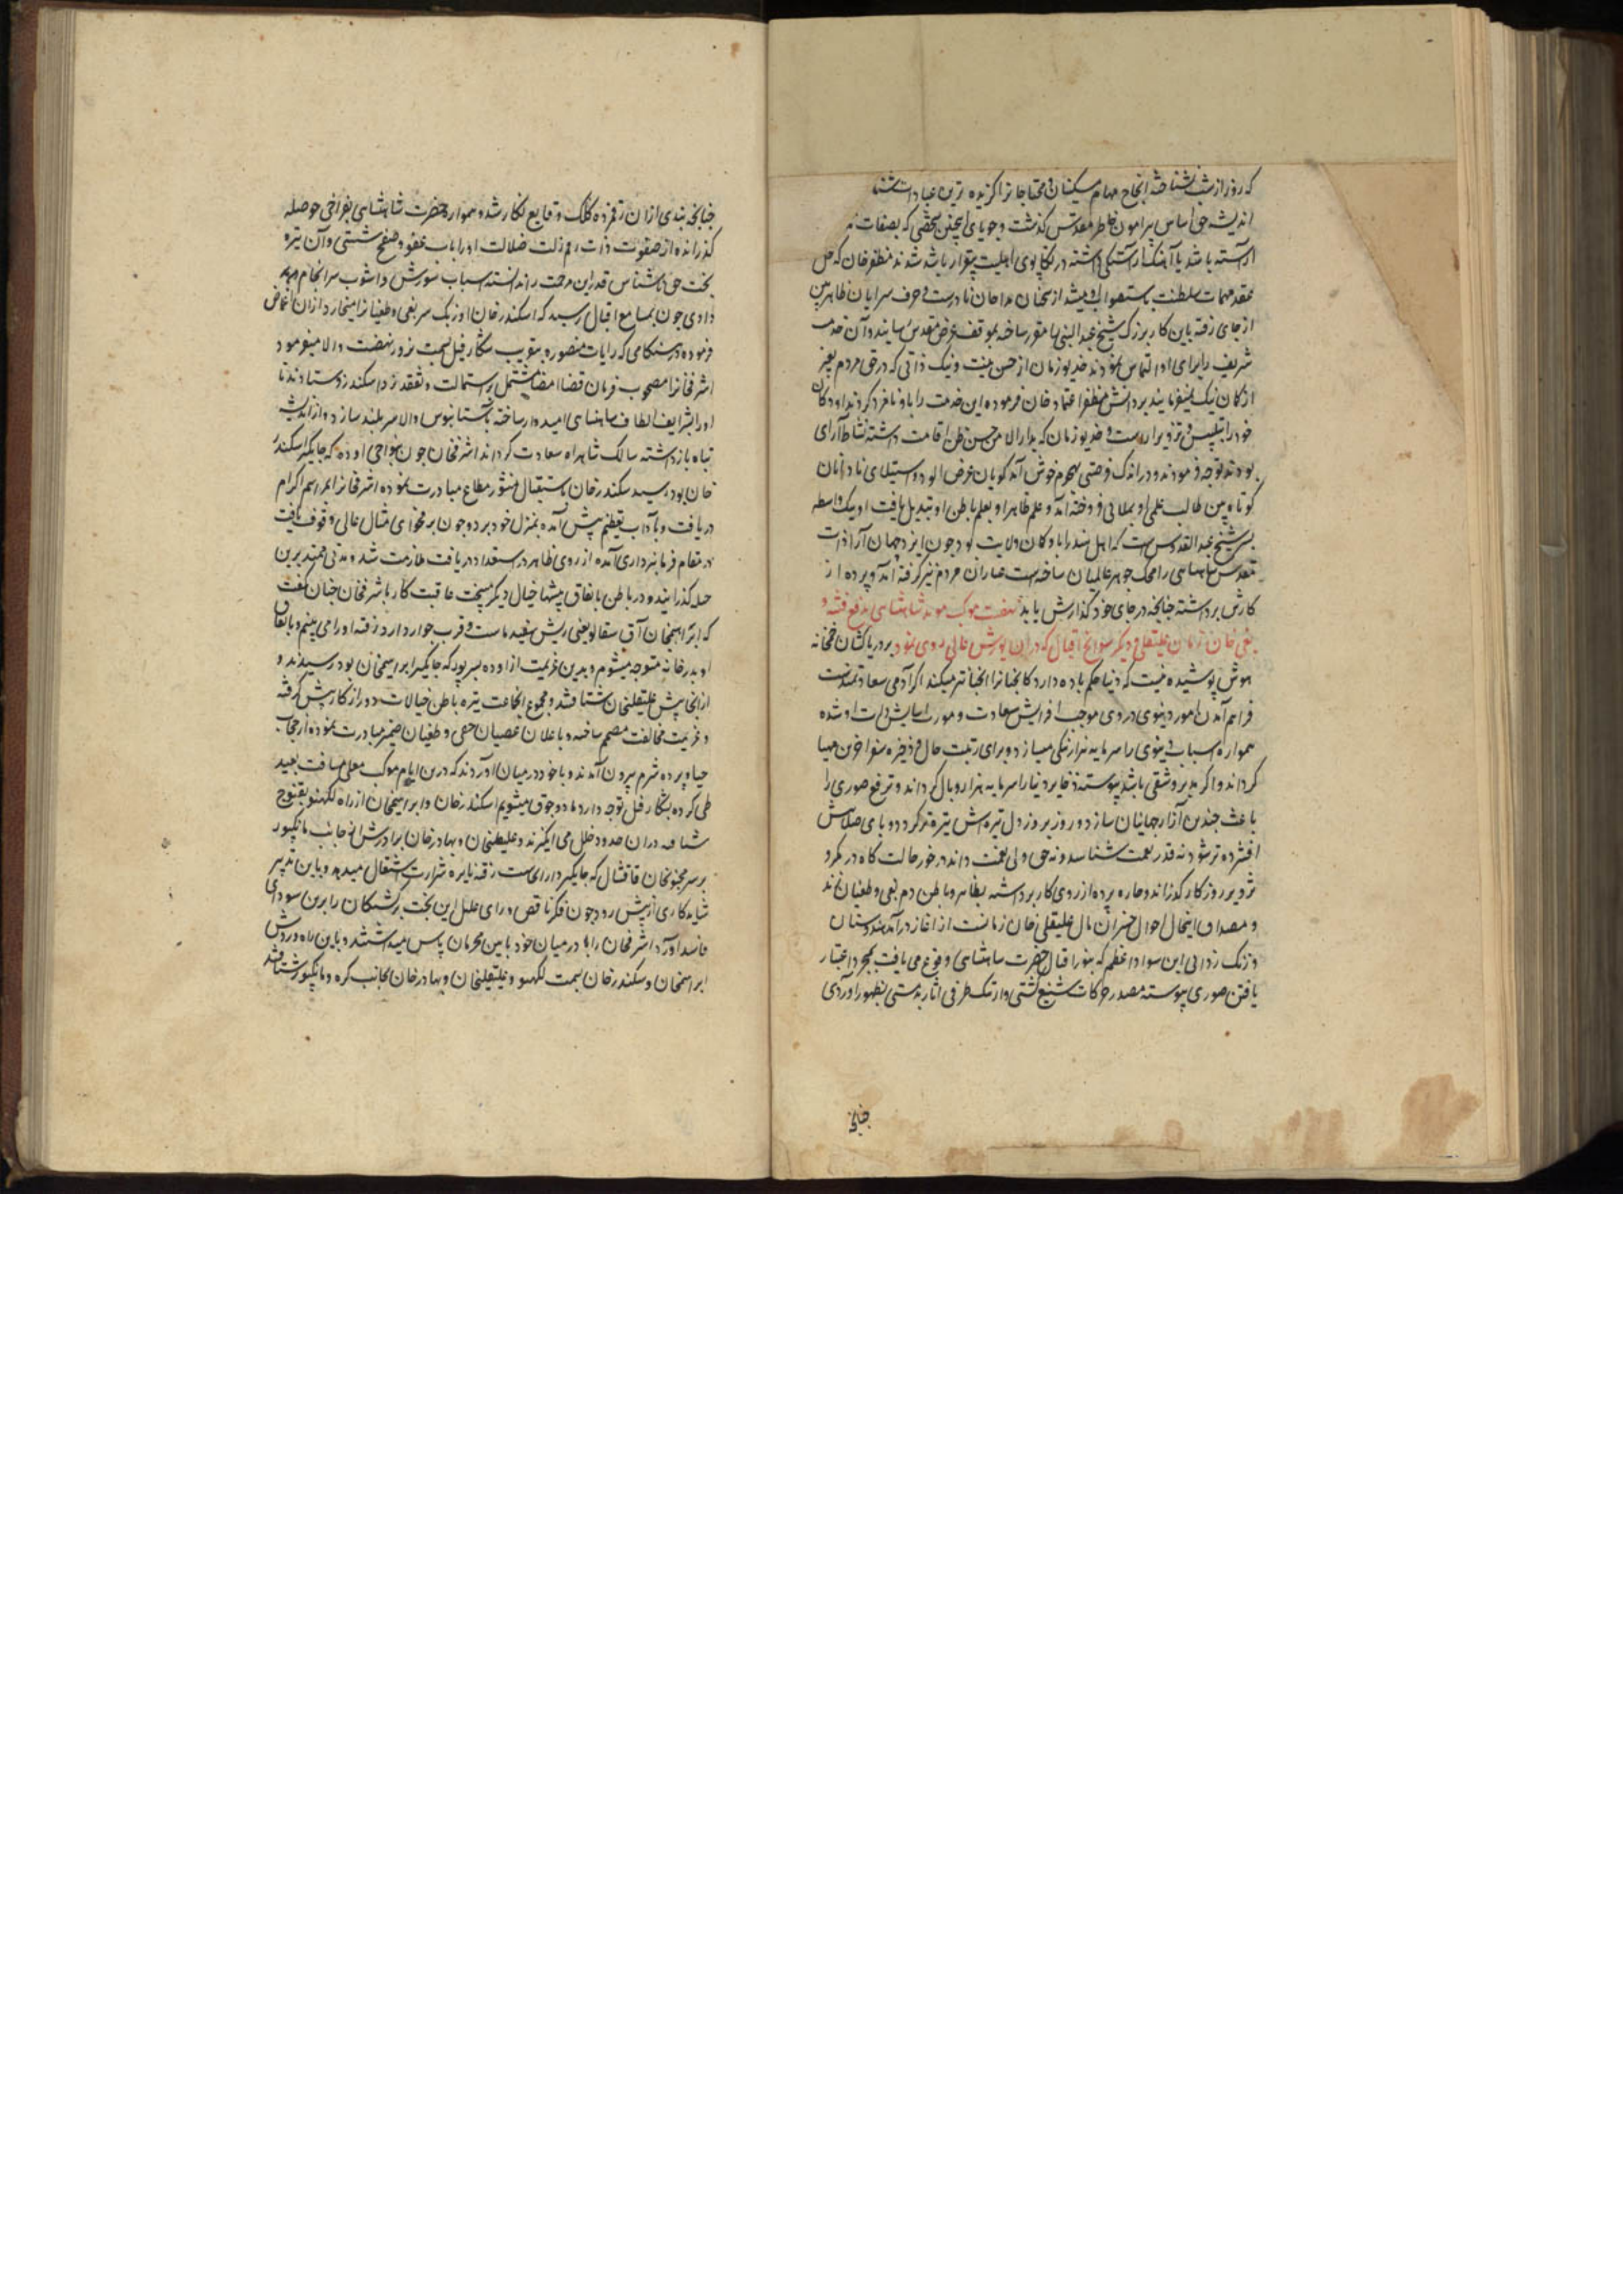 که روز از شب نشناخته انجاح مهام مسکینان و محتاجان را گزیده ترین عبادات شناسد
اندیشه حق اساس پیرامون خاطر مقدس گذشت و جویای اینچنین شخصی که بصفات
آراسته باشد با آهنگ آراستگی داشته در تکاپوی اهلیت پرور باشد شدند مظفرخان که حل
عقد مهمات سلطنت باستصواب او میشد از سخنان مداحان نادرست و حرف سرایان ظاهربین
از جای رفته باین کار بزرگ شیخ عبدالنبی را مقرر ساخته بموقف عرض مقدس رسانید و آن خدمت
شریف را برای او التماس نمودند خدیو زمان از حسن نیت و نیک ذاتی که در حق مردم بغیر
از گمان نیک نمیفرمایند بر دانش مظفر اعتماد خان فرموده این خدمت را باو نامزد کردند او دکان
خود را بتلبیس و تزویر آراست و خدیو زمان که بدار الامن حسن ظن اقامت داشته نشاط آرای
بودند توجه فرمودند و در اندک فرصتی بهجوم خوش آمد گویان غرض آلود و استیلای نادانان
کوتاه بین طالب علمی او بملائی فروخته آمد و علم ظاهر او بعلم باطن او تبدیل یافت او بیک واسطه
پسر شیخ عبدالقدوس است که اهل هند را باو گمان ولایت بود چون ایزد جهان آرا ذات
مقدس شاهنشاهی را محک جوهر عالمیان ساخته است عیار آن مردم نیز گرفته آمد و پرده از
کارش برداشته چنانچه در جای خود گذارش یابد نهضت موکب موید شاهنشاهی بدفع فتنه و
بغی خان زمان علیقلی و دیگر سوانح اقبال که در آن یورش عالی روی نمود بر دریاکشان خمخانه
هوش پوشیده نیست که دنیا حکم باده دارد کابخنا نرا ابخناتر میکند اگر آدمی سعادتمند است
فراهم آمدن امور دنیوی در وی موجب افزایش سعادت و مورث آسایش ذات او شده
همواره اسباب دنیوی را سرمایه نیازمندی میسازد و برای رتبت حال و ذخیره سفر آخرین مهیا
گرداند و اگر مدبر و شقی باشد پیوسته ذخایر دنیا را سرمایه هزار وبال گرداند و ترفع صوری را
باعث چندین آزار جهانیان سازد و روز بروز دل تیره اش تیره تر گردد و پای ضلالتش
افشرده تر شود نه قدر نعمت شناسد و نه حق ولی نعمت داند در خور حالت گاه در مکر و
تزویر روزگار گذراند و گاه پرده از روی کار برداشته بظاهر و باطن دم بغی و طغیان زند
و مصداق این حال احوال خسران مآل علیقلی خان زمانست از آغاز در آمد هندوستان
و زنگ زدائی این سواد اعظم که بفر اقبال حضرت شاهنشاهی وقوع می یافت بمجرد اعتبار
یافتن صوری پیوسته مصدر حرکات شنیع گشتی و از تنک ظرفی آثار بدمستی بظهور آوردی
چنانچه
چنانچه بندی ازان رقمزده کلک وقایع نگار شد و همواره حضرت شاهنشاهی بفراخی حوصله
گذرانده از صفوت ذات رقم زلت ضلالت او را بآب عفو و صفح شستی و آن تیره
بخت حق ناشناس قدر این مرحمت را ندانسته اسباب شورش و آشوب سرانجام میداد
دادی چون بمسامع اقبال رسید که اسکندر خان اوزبک سر بغی و طغیان را میخارد ازان اغماض
فرموده در هنگامی که رایات منصوره بتقریب شکار فیل بسمت نرور نهضت والا میفرمود
اشرفخان را مصحوب فرمان قضا امضا مشتمل بر استمالت و تفقد نزد اسکندر فرستادند تا
او را بشرایف الطاف شاهنشاهی امیدوار ساخته بآستانبوس والا سربلند سازد و از اندیشه
تباه باز داشته سالک شاهراه سعادت گرداند اشرفخان چون بنواحی اوده که جایگیر اسکندر
خان بود رسید سکندر خان باستقبال منشور مطاع مبادرت نموده اشرفخان را بمراسم اکرام
دریافت و بآداب تعظیم پیش آمده بمنزل خود برد و چون بر فحوای مثال عالی وقوف یافت
در مقام فرمانبرداری آمده از روی ظاهر در استعداد دریافت ملازمت شد و مدتی ممتد برین
حیله گذرانید و در باطن بانفاق پیشها خیال دیگر میپخت عاقبت کار باشرفخان چنان گفت
که ابراهیمخان آق سقالو یعنی ریش سفید ماست و قرب جوار دارد رفته او را می بینیم و باتفاق
او بدرخانه متوجه میشویم و بدین عزیمت از اوده بسرور که جایگیر ابراهیمخان بود رسیدند و
از انجا پیش علیقلیخان شتافتند و مجموع انجماعت تیره باطن خیالات دور از کار پیش گرفته
و عزیمت مخالفت مصمم ساخته و باعلان عصیان خفی و طغیان ضمیر مبادرت نموده از حجاب
حیا و پرده شرم بیرون آمدند و با خود در میان آوردند که درین ایام موکب معلی مسافت بعید
طی کرده بشکار فیل توجه دارد ما دو جوق میشویم اسکندر خان و ابراهیمخان از راه لکهنو بقنوج
شتافته دران حدود خلل می انگیزند و علیقلیخان و بهادر خان برادرش از جانب مانکپور
بر سر مجنونخان قاقشال که جایگیردار آنجاست رفته نایره شرارت اشتعال میدهد و باین تدبیر
شاید کاری از پیش رود چون فکر ناقص و رای علیل این بخت برگشتگان را برین سودای
فاسد آورد اشرفخان را با در میان خود باین محرمان پاس میداشتند و باین راه و روش
ابراهیمخان و سکندر خان بسمت لکهنو و علیقلیخان و بهادر خان بجانب کره و مانکپور شتافتند